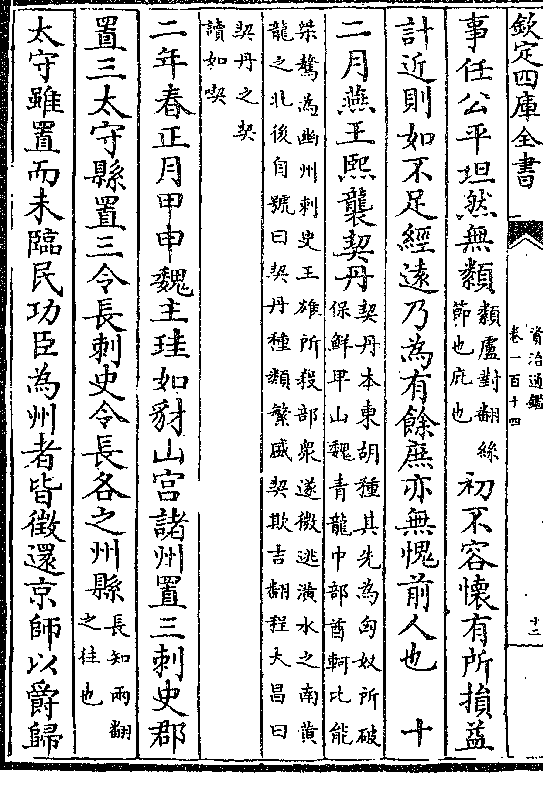 欽定四庫全書
資治通鑑
卷一百十四
十二
事任公平坦然無類類盧對翻絲節也庇也初不容懷有所損益
計近則如不足經遠乃為有餘庶亦無愧前人也 十
二月燕王熙襲契丹契丹本東胡種其先為匈奴所破保鮮卑山魏青龍中部酋軻比能
桀驁為幽州刺史王雄所殺部衆遂微逃潢水之南黄
龍之北後自號曰契丹種類繁盛契欺吉翻程大昌曰
契丹之契
讀如喫
二年春正月甲申魏主珪如豺山宮諸州置三刺史郡
置三太守縣置三令長刺史令長各之州縣長知兩翻之往也
太守雖置而未臨民功臣為州者皆徵還京師以爵歸